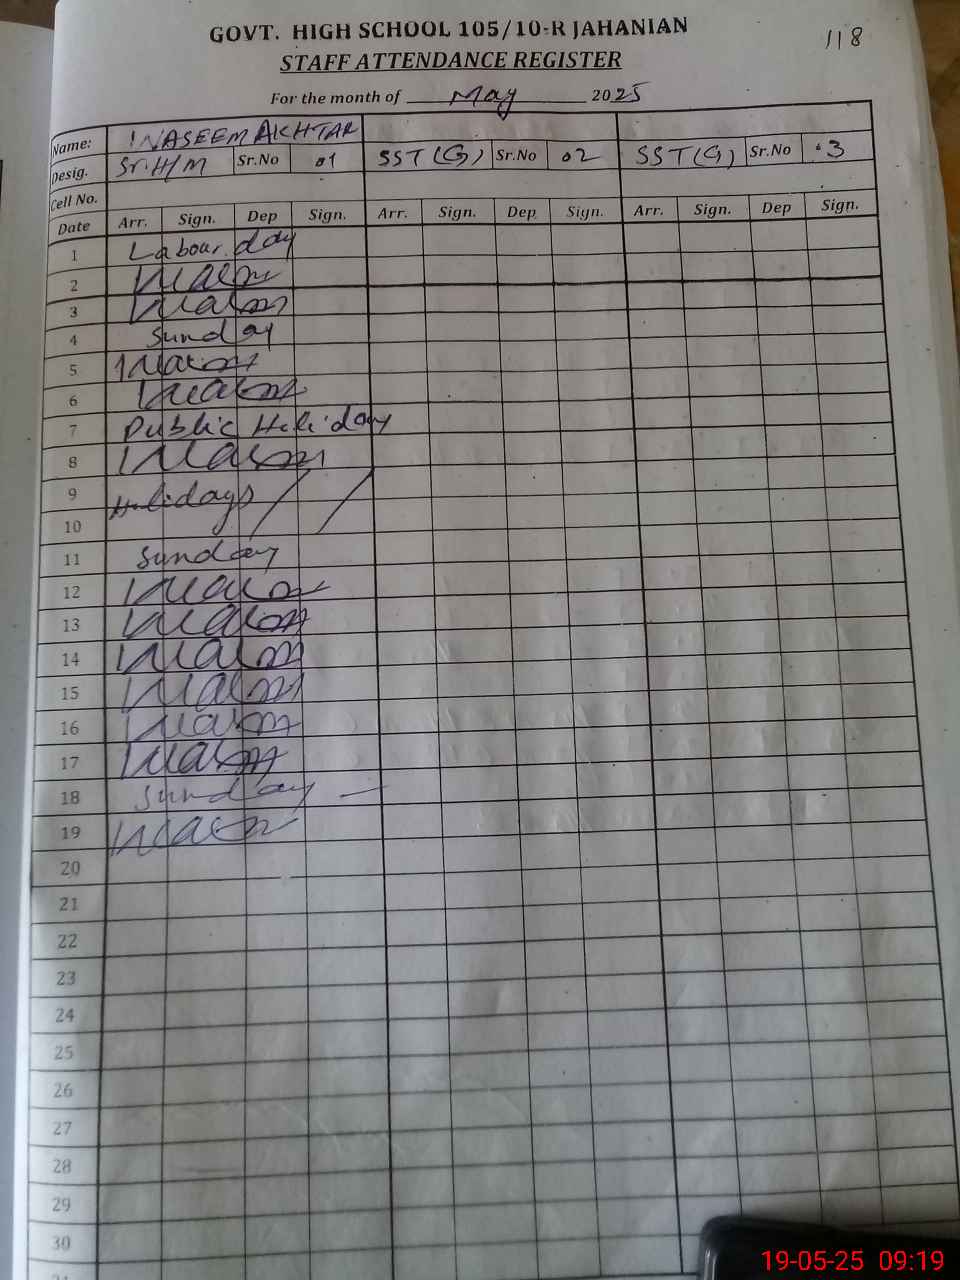 118
GOVT. HIGH SCHOOL 105/10-R JAHANIAN
STAFF ATTENDANCE REGISTER
For the month of May 2025
Name: WASEEM AKHTAR
Desig. Sr.H/M Sr.No 01 SST(G) Sr.No 02 SST(G) Sr.No 03
Cell No.
Date Arr. Sign. Dep Sign. Arr. Sign. Dep Sign. Arr. Sign. Dep Sign.
1 Labour day
2
3
4 Sunday
5
6
7 Public Holiday
8
9 Holidays
10
11 Sunday
12
13
14
15
16
17
18 Sunday
19
20
21
22
23
24
25
26
27
28
29
30
19-05-25 09:19